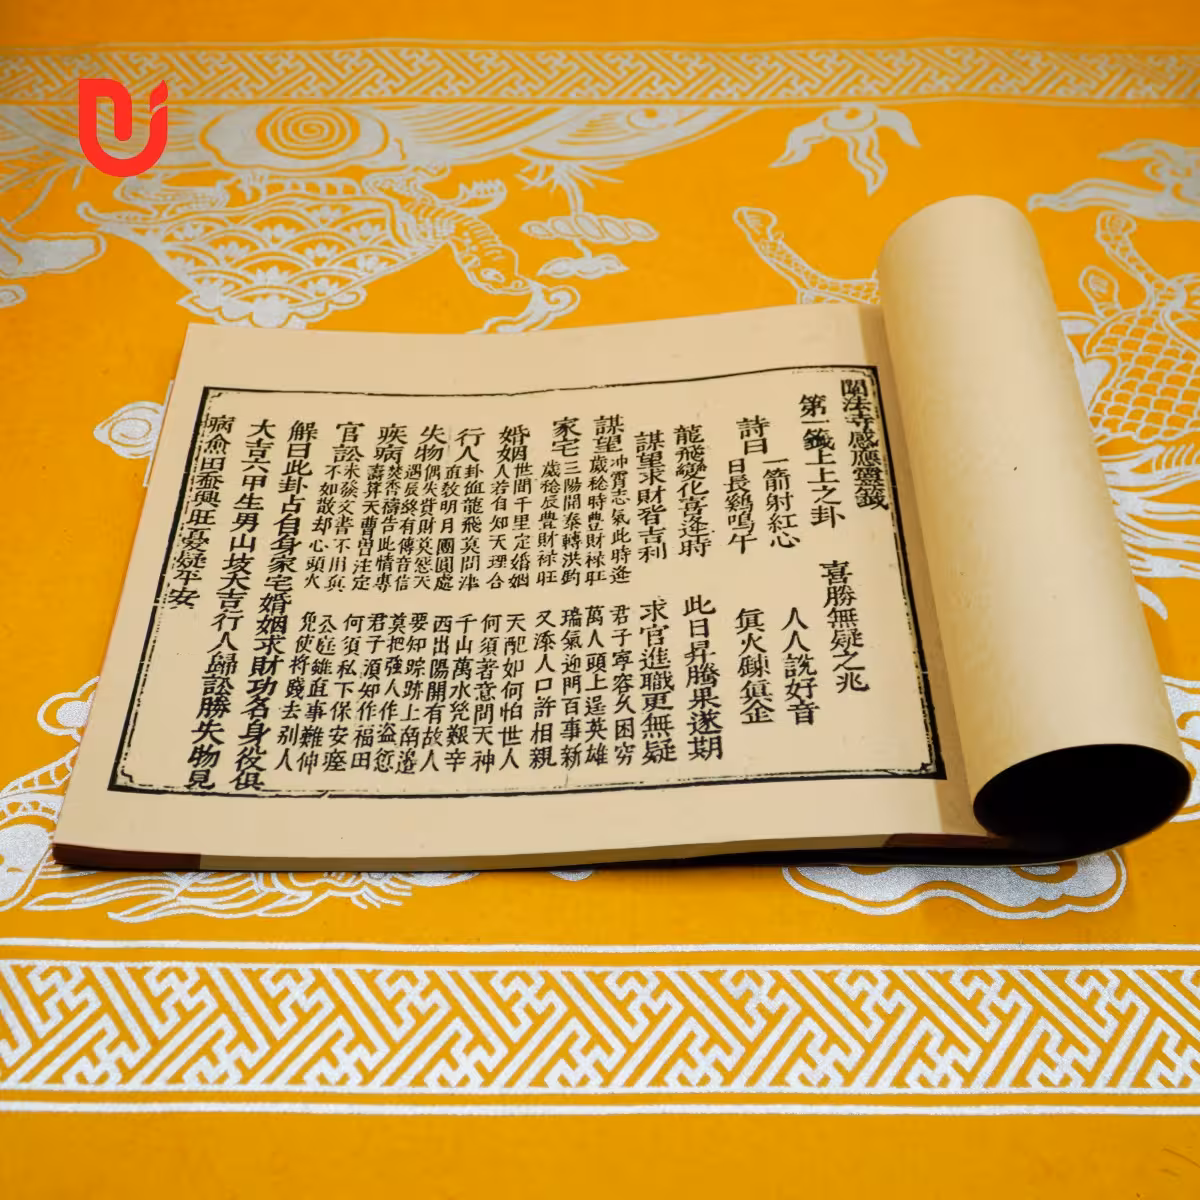 闡法寺感應靈籤
第一籤上上之卦 喜勝無疑之兆
詩曰 一箭射紅心 人人說好音
日長鷄鳴午 真火鍊真金
龍飛變化喜逢時 此日昇騰果遂期
謀望求財皆吉利 求官進職更無疑
謀望 冲霄志氣此時逢 君子寧容久困窮
歲稔時豊財禄旺 萬人頭上逞英雄
家宅 三陽開泰轉洪鈞 瑞氣迎門百事新
歲稔辰豊財禄旺 又添人口許相親
婚姻 世間千里定婚姻 天配如何怕世人
人若有自知天理合 何須著意問天神
行人 卦值龍飛莫問津 千山萬水兊艱辛
直教明月團圓處 西出陽關有故人
失物 偶失貲財莫怨天 要知踪跡上南邊
遇辰終有傳音信 莫把強人作盗愆
疾病 焚香禱告此情專 君子須知作福田
壽算天曹曽注定 何須私下保安痊
官訟 未發文書不用真 公庭雖直事難伸
不如散却心頭火 免使将錢去别人
解曰此卦占自身家宅婚姻求財功名身役俱
大吉六甲生男山坡大吉行人歸訟勝失物見
病愈田蚕興旺憂疑平安